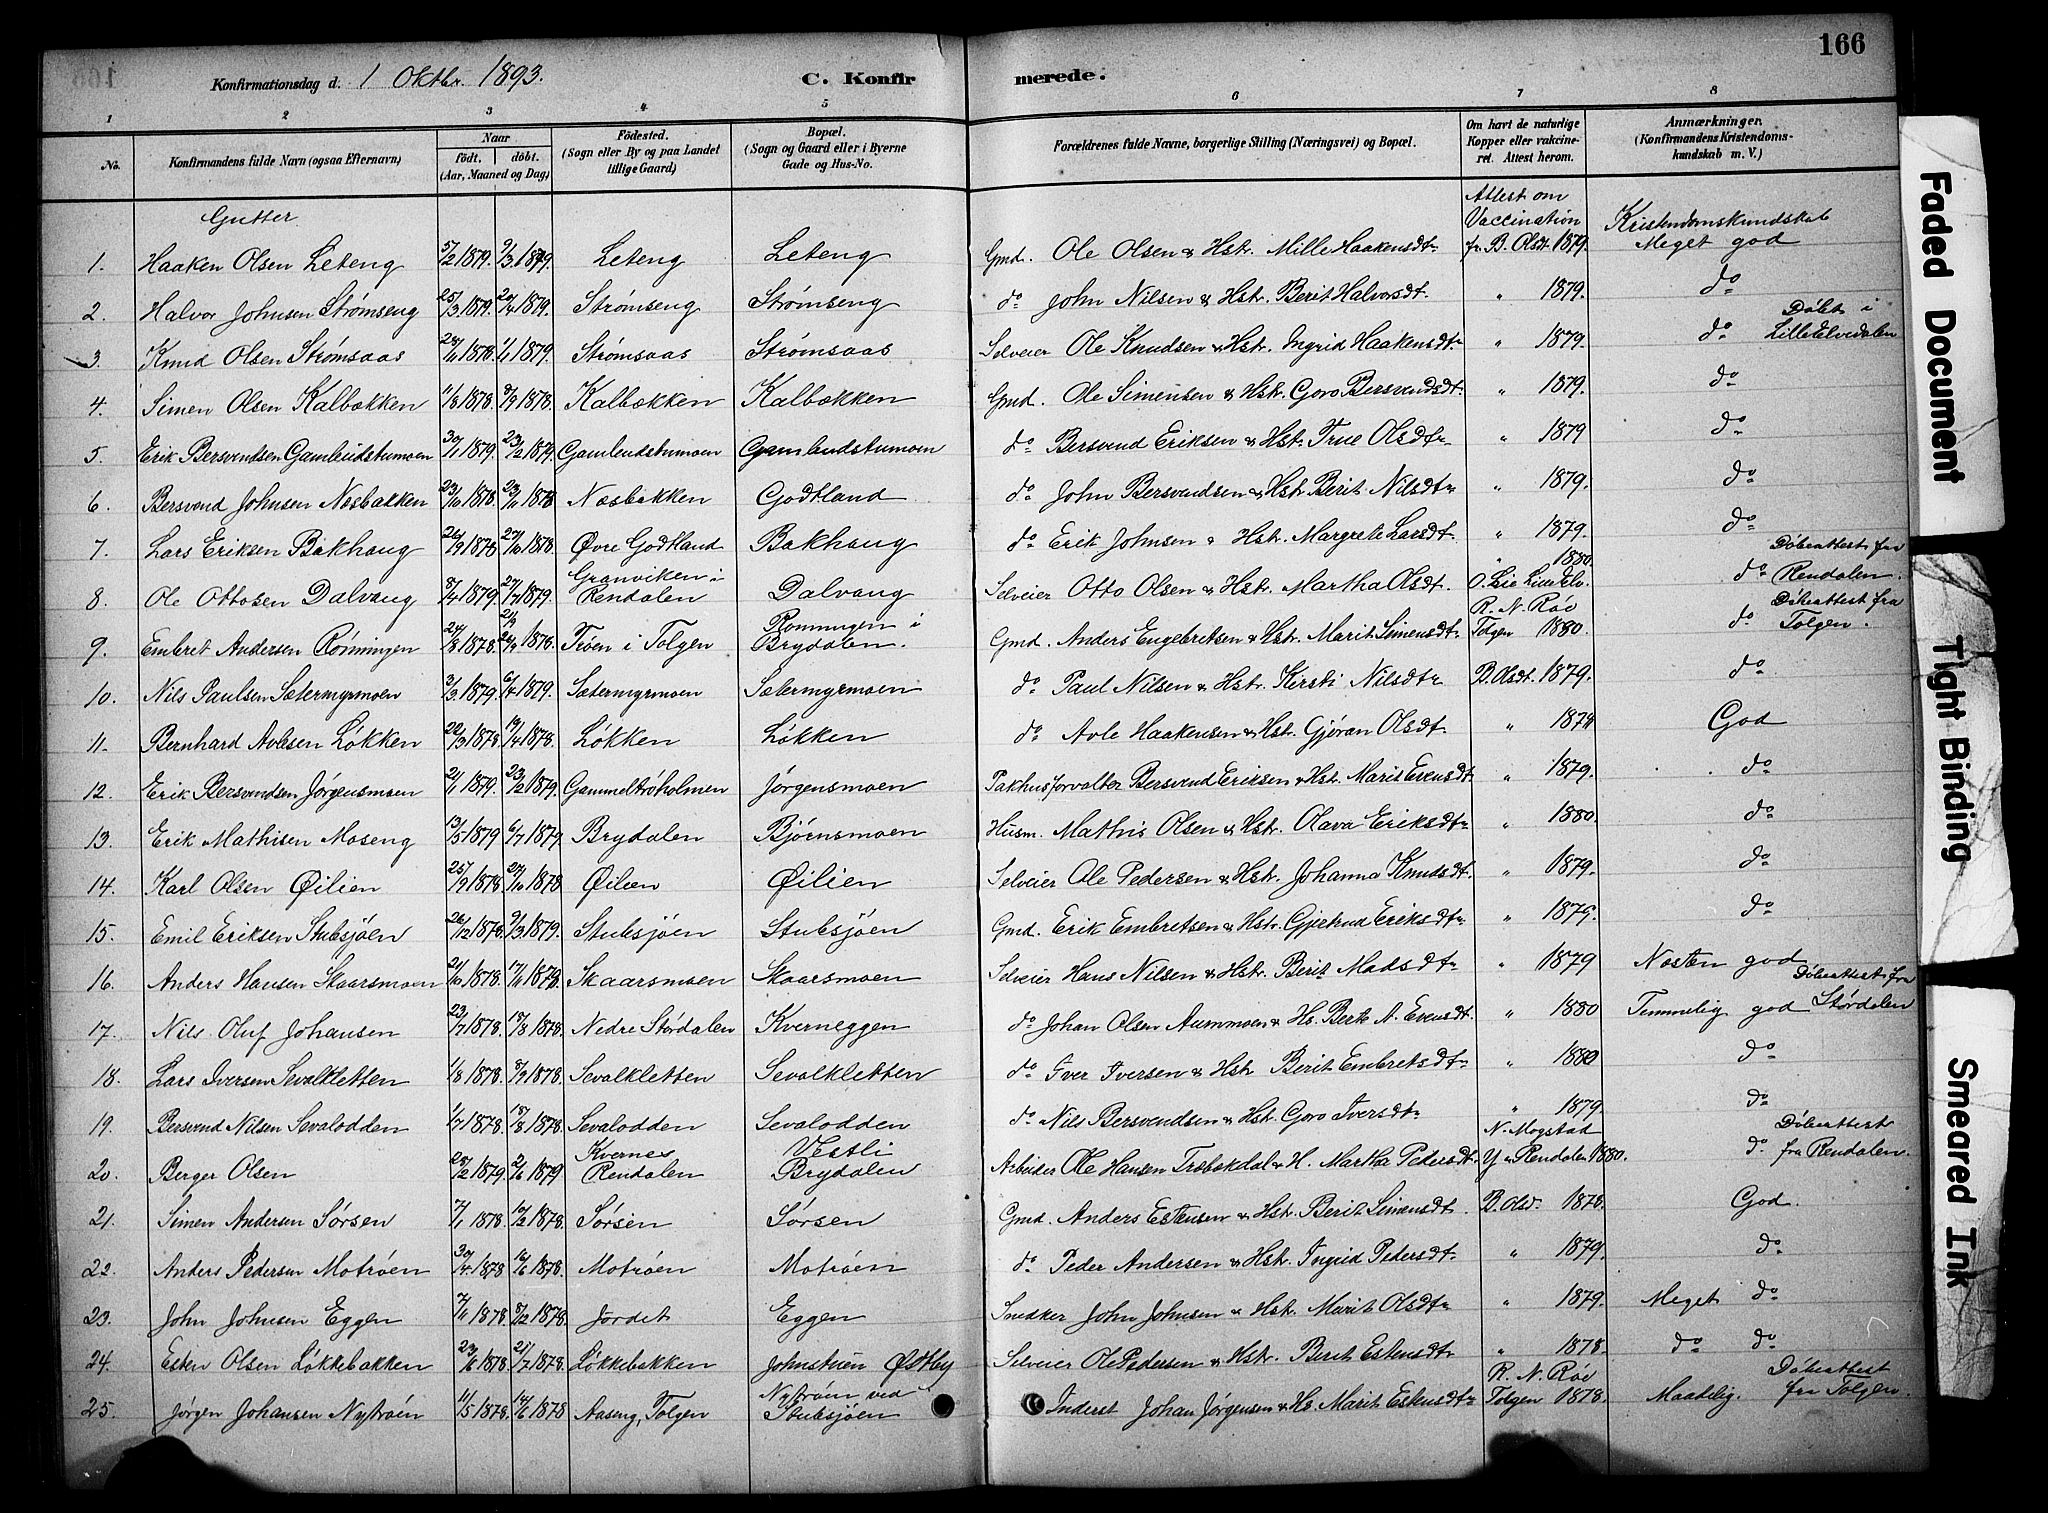 166
Konfirmationsdag d. 1 Oktbr. 1893. C. Konfirmerede.
1 2 3 4 5 6 7 8
No. Konfirmandens fulde Navn (ogsaa Efternavn) Naar født. døbt. (Aar, Maaned og Dag) Fødested. (Sogn eller By og paa Landet tillige Gaard) Bopæl. (Sogn og Gaard eller i Byerne Gade og Hus-No. Forældrenes fulde Navne, borgerlige Stilling (Næringsvei) og Bopæl. Om havt de naturlige Kopper eller vakcineret. Attest herom. Anmærkninger. (Konfirmandens Kristendomskundskab m. V.)
Gutter Attest om Vaccination Kristendomskundskab
1. Haaken Olsen Leteng 5/2 1879. 9/3 1879. Leteng Leteng Gmd. Ole Olsen & Hstr. Mille Haakensdtr fr. B. Olsdt. 1879. Meget god
2. Halvor Johnsen Strømseng 25/3 1879. 20/4 1879. Strømseng Strømseng do John Nilsen & Hstr. Berit Halvorsdtr. " 1879. do
3. Knud Olsen Strømsaas 1878. 1/1 1879. Strømsaas Strømsaas Selveier Ole Knudsen & Hstr. Ingrid Haakensdtr " 1879. do Døbt i Lilleelvedalen
4. Simen Olsen Kalbækken 11/8 1878. 8/9 1878. Kalbækken Kalbækken Gmd. Ole Simensen & Hstr. Goro Bersvendsdtr. " 1879. do
5. Erik Bersvendsen Gamleudstumoen 30/1 1879. 23/2 1879. Gamleudstumoen Gamleudstumoen do Bersvend Eriksen & Hstr. True Olsdtr " 1879 do
6. Bersvend Johnsen Næsbakken 23/10 1878. 23/11 1878 Næsbakken Godtland do John Bersvendsen & Hstr. Berit Nilsdtr " 1879. do
7. Lars Eriksen Bakhaug 26/9 1878 27/10 1878. Øvre Godtland Bakhaug do Erik Johnsen & Hstr. Margrete Larsdtr. " 1879. do
8. Ole Ottosen Dalvang 8/4 1879. 27/7 1879. Granviken i Rendalen Dalvang Selveier Otto Olsen & Hstr. Martha Olsdt. " 1880. O. Lie do Døbeattest fra Rendalen.
9. Embret Andersen Rønningen 24/8 1878. 1878. Trøen i Tolgen Rønningen i Brydalen. Gmd. Anders Engebretsen & Hstr. Marit Simensdtr R. N. Røe Tolgen 1880. do Døbeattest fra Tolgen.
10. Nils Paulsen Sætermyrmoen 3/3 1879. 6/4 1879. Sætermyrmoen Sætermyrmoen do Paul Nilsen & Hstr. Kirsti Nilsdtr B. Olsdt. 1879. do
11. Bernhard Avlesen Løkken 22/3 1878 19/4 1878. Løkken Løkken do Avle Haakensen & Hstr. Gjøran Olsdt. " 1879 God
12. Erik Bersvendsen Jørgensmoen 21/1 1879. 23/2 1879. Gammeltrøholmen Jørgensmoen Pakhusforvalter Bersvend Eriksen & Hst. Marit Evensdt " 1879. do
13. Erik Mathisen Moseng 13/5 1879 6/7 1879. Brydalen Bjørnsmoen Husm. Mathis Olsen & Hstr. Olava Eriksdtr " 1880. do
14. Karl Olsen Øilien 25/9 1878. 27/10 1878 Øilien Øilien Selveier Ole Pedersen & Hstr. Johanna Knudsdt. " 1879. do
15. Emil Eriksen Stubsjøen 26/12 1878. 9/3 1879. Stubsjøen Stubsjøen Gmd. Erik Embretsen & Hstr. Gjertrud Eriksdtr " 1879. do
16. Anders Hansen Skaarsmoen 21/10 1878. 17/11 1878. Skaarsmoen Skaarsmoen Selveier Hans Nilsen & Hstr. Berit Madsdtr " 1879 Næsten god
17. Nils Oluf Johansen 23/7 1878. 18/8 1878. Nedre Størdalen Kverneggen do Johan Olsen Aummoen & Hs. Berit A. Evensdt. " 1880 Temmelig god Døbeattest fra Størdalen
18. Lars Iversen Sevalkletten 1/8 1878. 8/9 1878. Sevalkletten Sevalkletten do Iver Iversen & Hstr Berit Embretsdtr " 1880 do
19. Bersvend Nilsen Sevalodden 1/7 1878. 18/8 1878. Sevalodden Sevalodden do Nils Bersvendsen & Hst. Goro Iversdtr " 1879. do
20. Berger Olsen 28/2 1879. 2/6 1879 Kvernes Rendalen Vestli Brydalen Arbeider Ole Hansen Træbækdal & H. Martha Pedersdt. N. Mogstad Y. Rendalen 1880. do Døbeattest fra Rendalen.
21. Simen Andersen Sørsen 7/1 1878. 10/2 1878. Sørsen Sørsen Gmd. Anders Estensen & Hstr Berit Simensdt. B. Olsd. 1878. God.
22. Anders Pedersen Motrøen 30/4 1878 16/6 1878. Motrøen Motrøen do Peder Andersen & Hstr. Ingrid Pedersdtr " 1879. do
23. John Johnsen Eggen 7/11 1878. 8/12 1878. Jordet Eggen Snedker John Johnsen & Hst. Marit Olsdtr " 1879. Meget do
24. Esten Olsen Løkkebakken 23/6 1878. 21/7 1878. Løkkebakken Johnstuen Østby Selveier Ole Pedersen & Hstr. Berit Estensdtr " 1878. do do
25. Jørgen Johansen Nytrøen 11/5 1878. 14/6 1878 Aaseng, Tolgen Nytrøen ved Stubsjøen Inderst Johan Jørgensen & Hs. Marit Estensdtr R. N. Røe Tolgen 1878. Maadelig. Døbeattest fra Tolgen.
Faded Document
Tight Binding
Smeared Ink